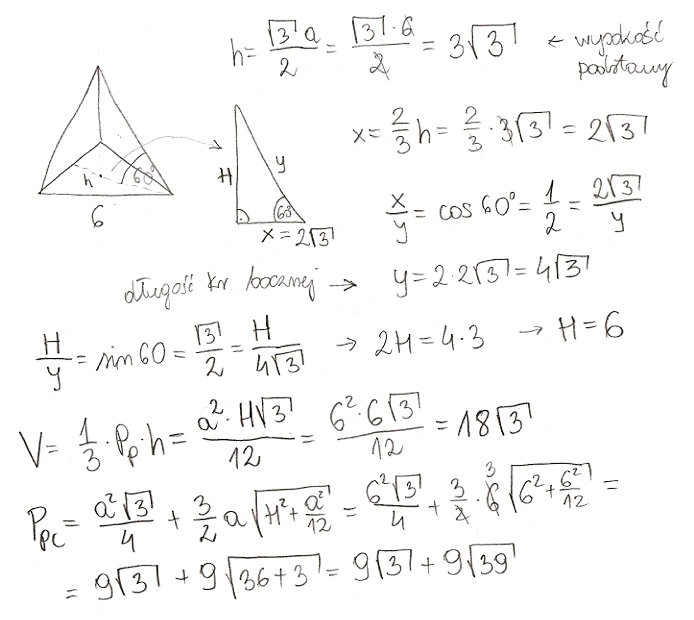 h = √3 a / 2 = √3 · 6 / 2 = 3√3 ← wysokość
podstawy
h
60°
6
H
y
60°
x = 2√3
x = 2/3 h = 2/3 · 3√3 = 2√3
x/y = cos 60° = 1/2 = 2√3 / y
długość kr. bocznej → y = 2·2√3 = 4√3
H/y = sin 60 = √3/2 = H / 4√3 → 2H = 4·3 → H = 6
V = 1/3 · Pp · h = a² · H√3 / 12 = 6² · 6√3 / 12 = 18√3
Ppc = a²√3 / 4 + 3/2 a √(H² + a²/12) = 6²√3 / 4 + 3/2 · 6 3 √(6² + 6²/12) =
= 9√3 + 9√(36+3) = 9√3 + 9√39